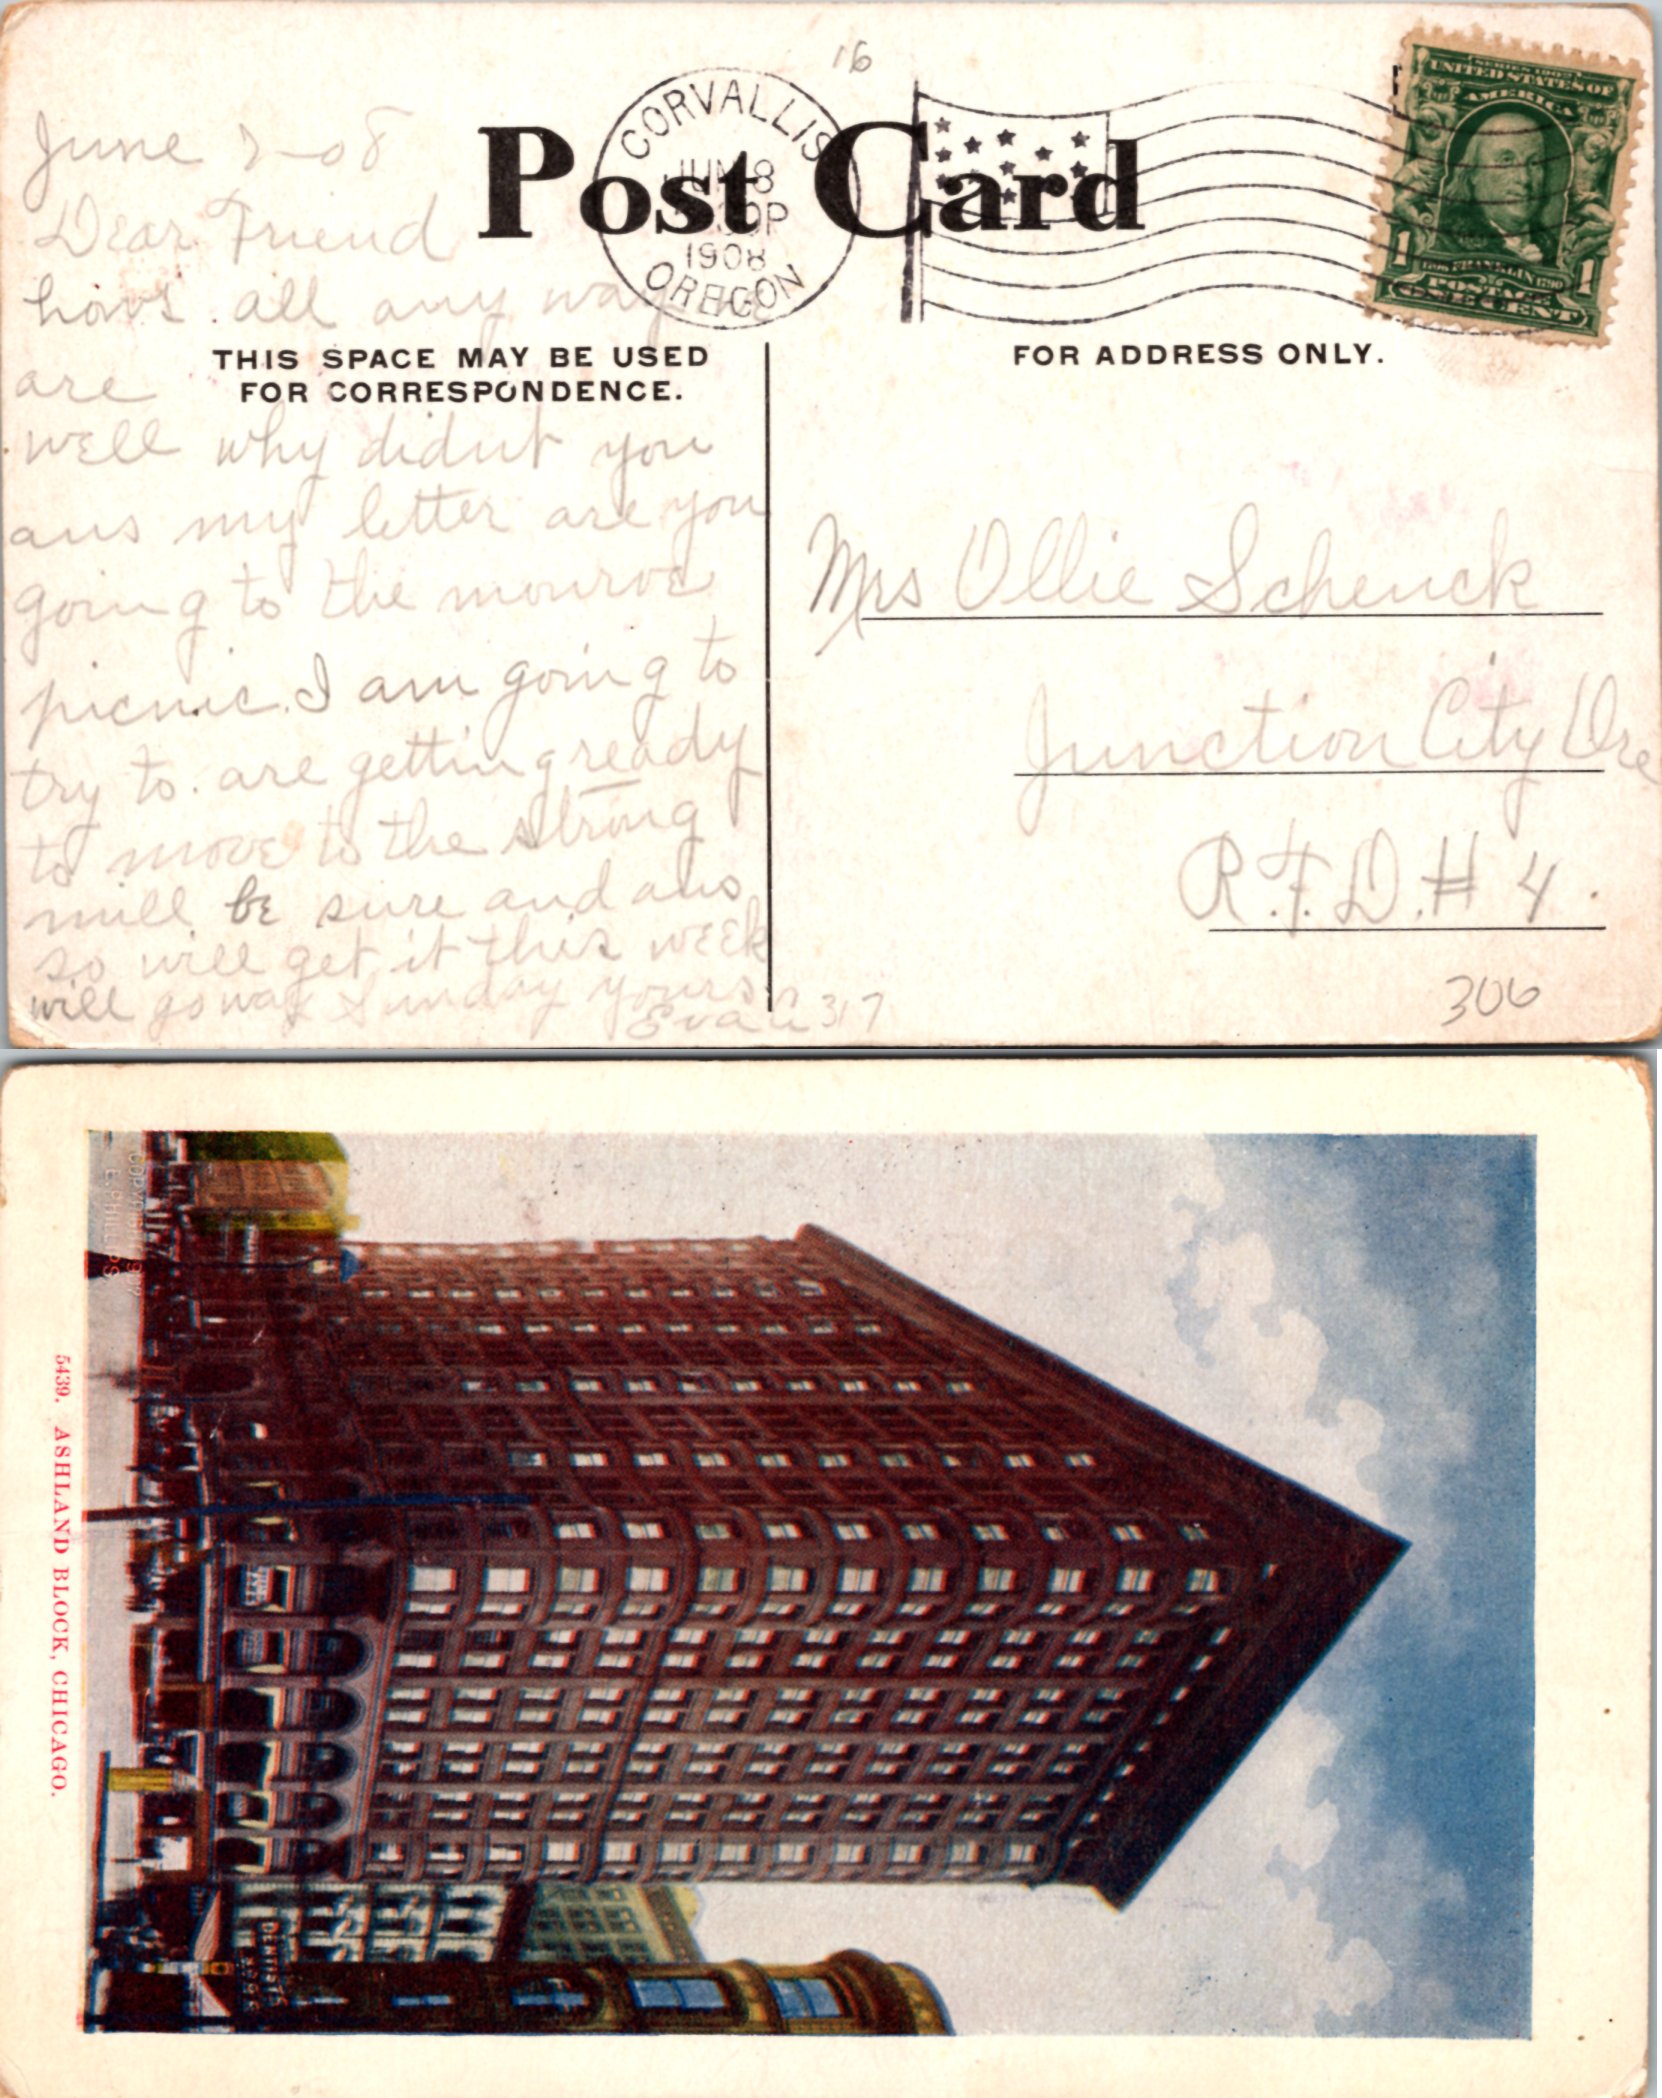 16
CORVALLIS
JUN 8
1908
OREGON
Post Card
SERIES 1902
UNITED STATES OF
AMERICA
FRANKLIN
POSTAGE
1 ONE CENT 1
THIS SPACE MAY BE USED
FOR CORRESPONDENCE.
FOR ADDRESS ONLY.
June 7-08
Dear Friend
hows all any way
are
well why didnt you
ans my letter are you
going to the monroe
picnic. I am going to
try to. are getting ready
to move to the strong
mill be sure and ans
so will get it this week
will go way Sunday yours
Eva
317
Mrs Ollie Schenck
Junction City Ore
R.F.D. # 4.
306
COPYRIGHT
PHILLIPS
DENTISTS
5439. ASHLAND BLOCK, CHICAGO.